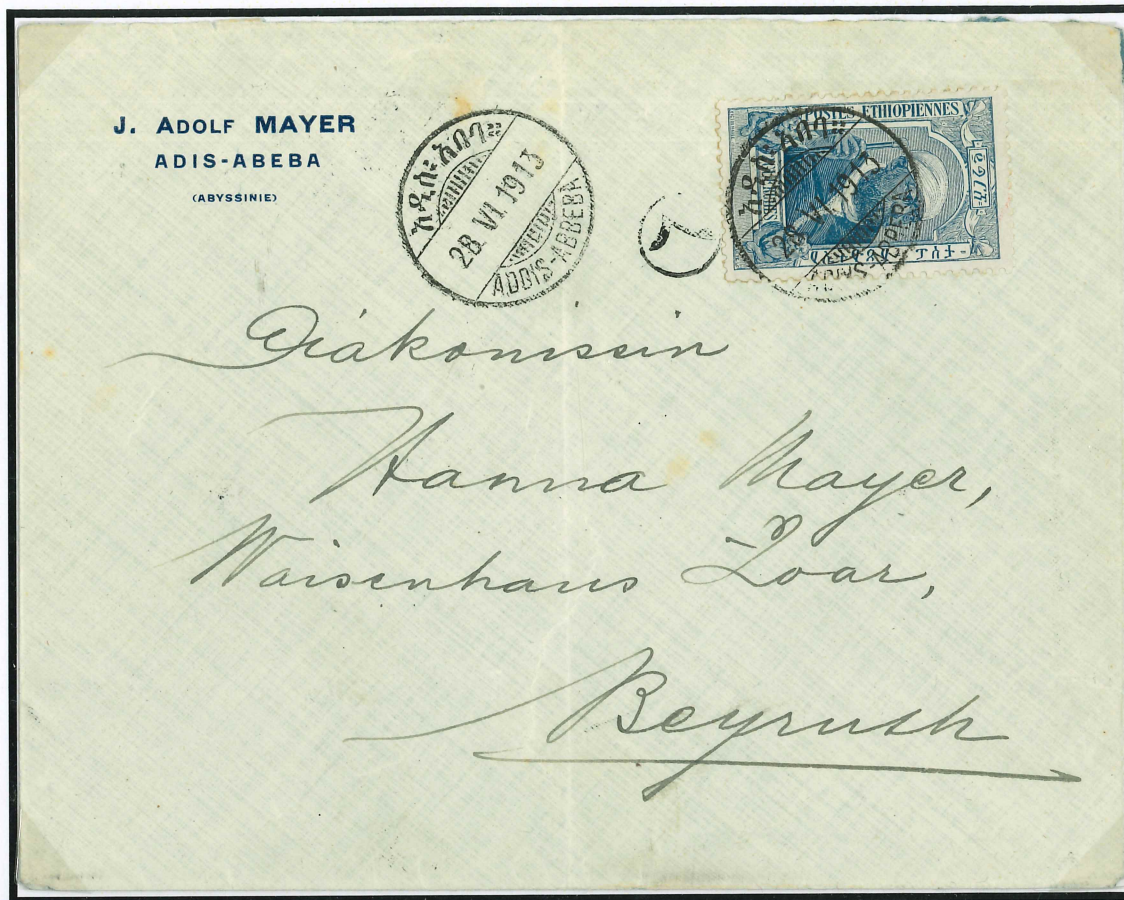 J. ADOLF MAYER
ADIS-ABEBA
(ABYSSINIE)
አዲስ፡አበባ።
28. VI. 1913
ADDIS-ABBEBA
T
POSTES ETHIOPIENNES
አዲስ፡አበባ።
28. VI. 1913
Diakonissin
Hanna Mayer,
Waisenhaus Zoar,
Beyruth